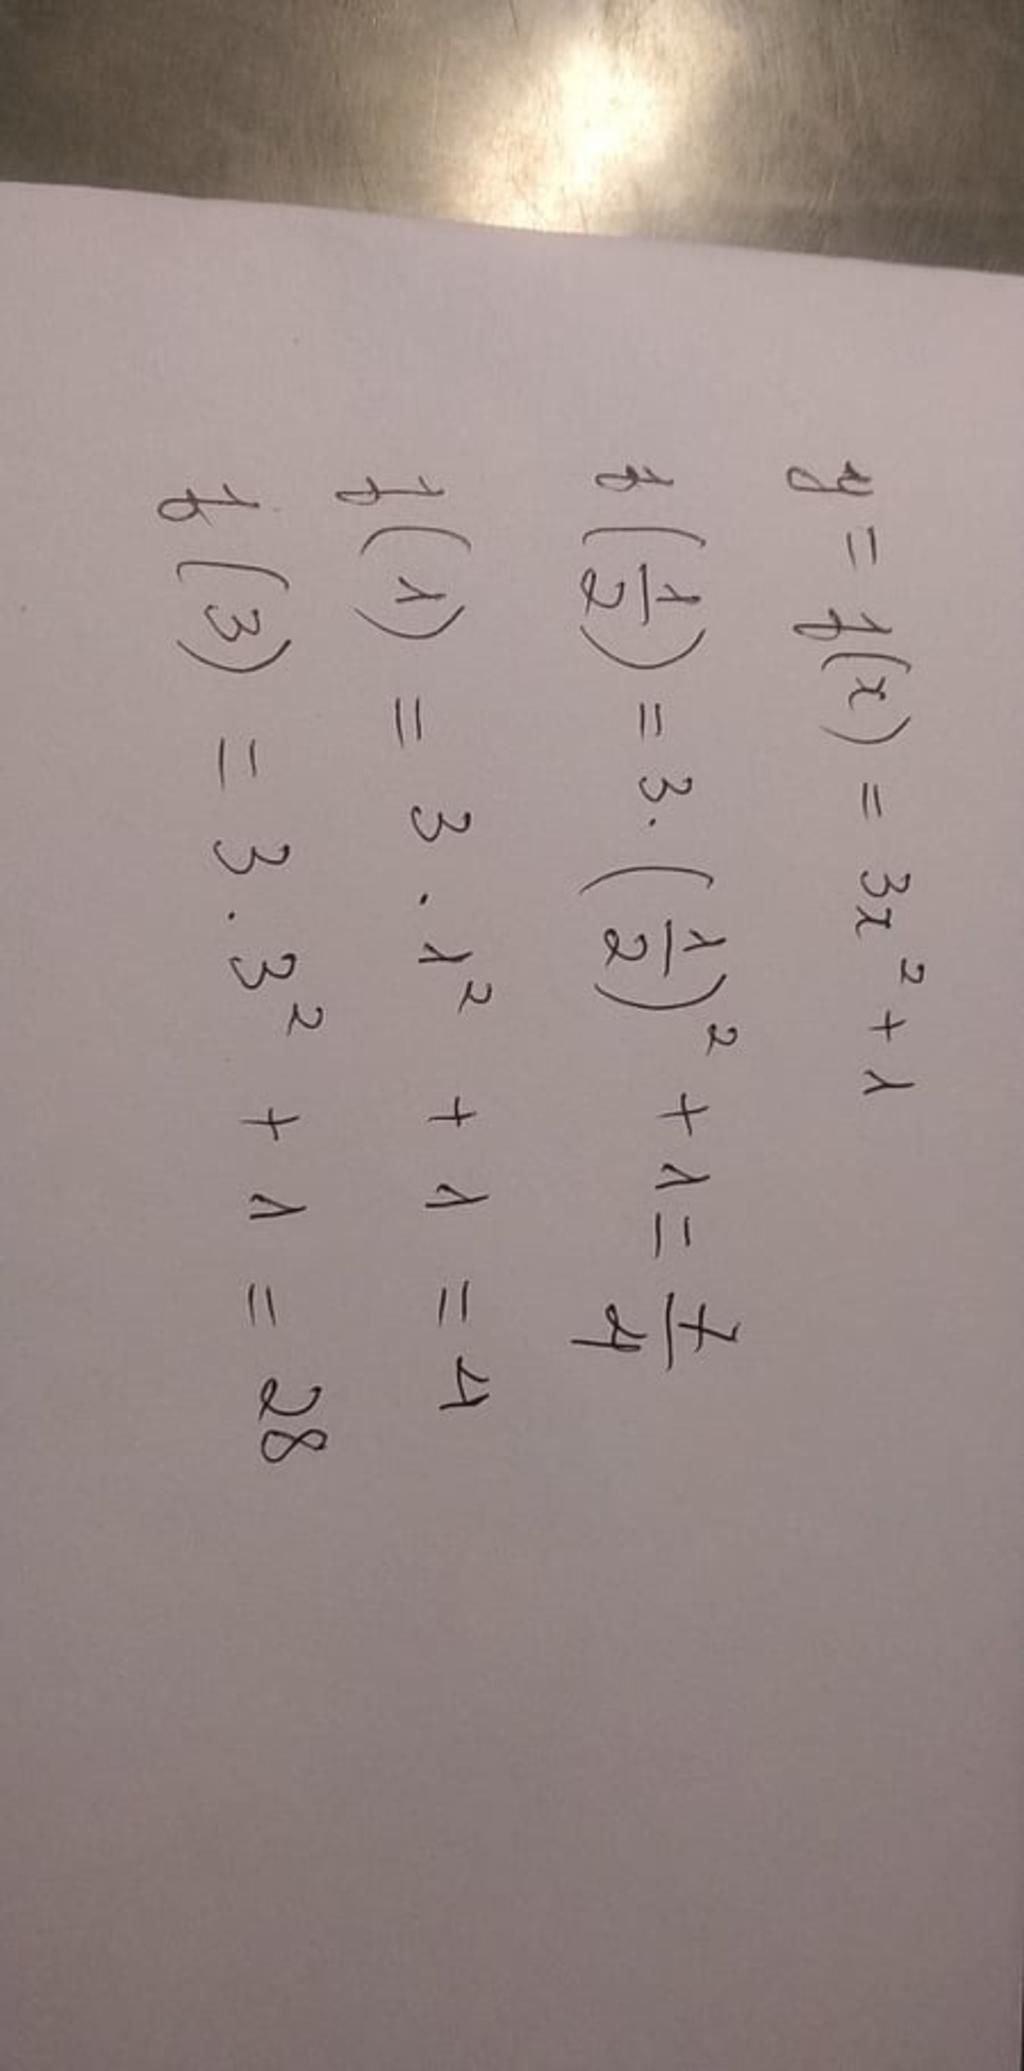 y = f(x) = 3x² + 1
f(1/2) = 3 · (1/2)² + 1 = 7/4
f(1) = 3 · 1² + 1 = 4
f(3) = 3 · 3² + 1 = 28